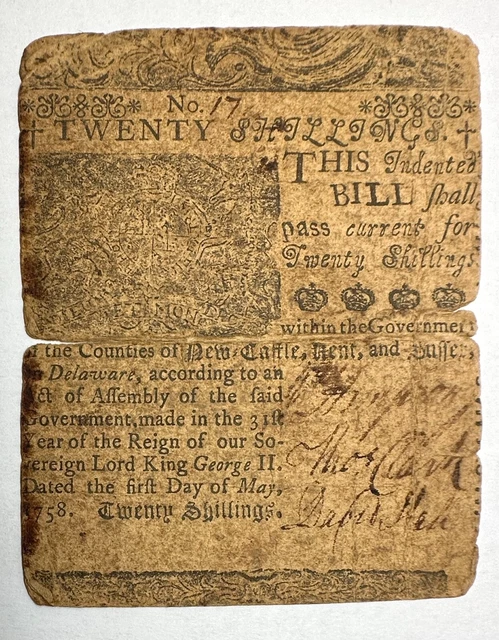 No. 17
TWENTY SHILLINGS.
THIS Indented
BILL ſhall
paſs current for
Twenty Shillings
within the Government
of the Counties of New-Caſtle, Kent, and Suſſex,
on Delaware, according to an
Act of Aſſembly of the ſaid
Government, made in the 31ſt
Year of the Reign of our So-
vereign Lord King George II.
Dated the firſt Day of May,
1758. Twenty Shillings.
Thos Clark
David Hall